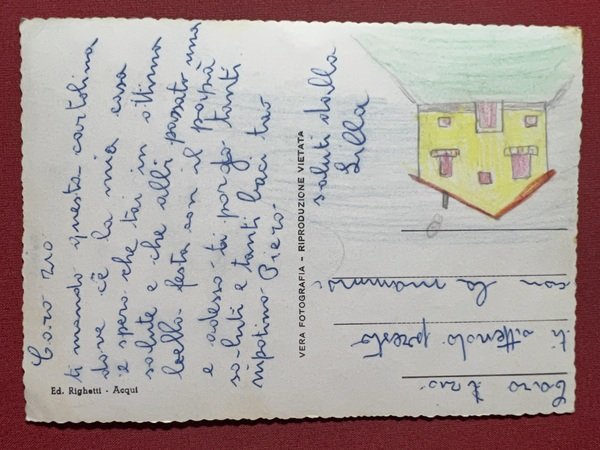 Caro zio
ti mando questa cartolina
dove cê la mia casa
e spero che tai in ottima
salute e che alli passato una
bella festa con il papà
e adesso ti porgo tanti
saluti e tanti baci tuo
nipotino Piero.
saluti dalla
Lilla
Caro zio
ti attendo presto
con la mamma.
VERA FOTOGRAFIA - RIPRODUZIONE VIETATA
Ed. Righetti - Acqui